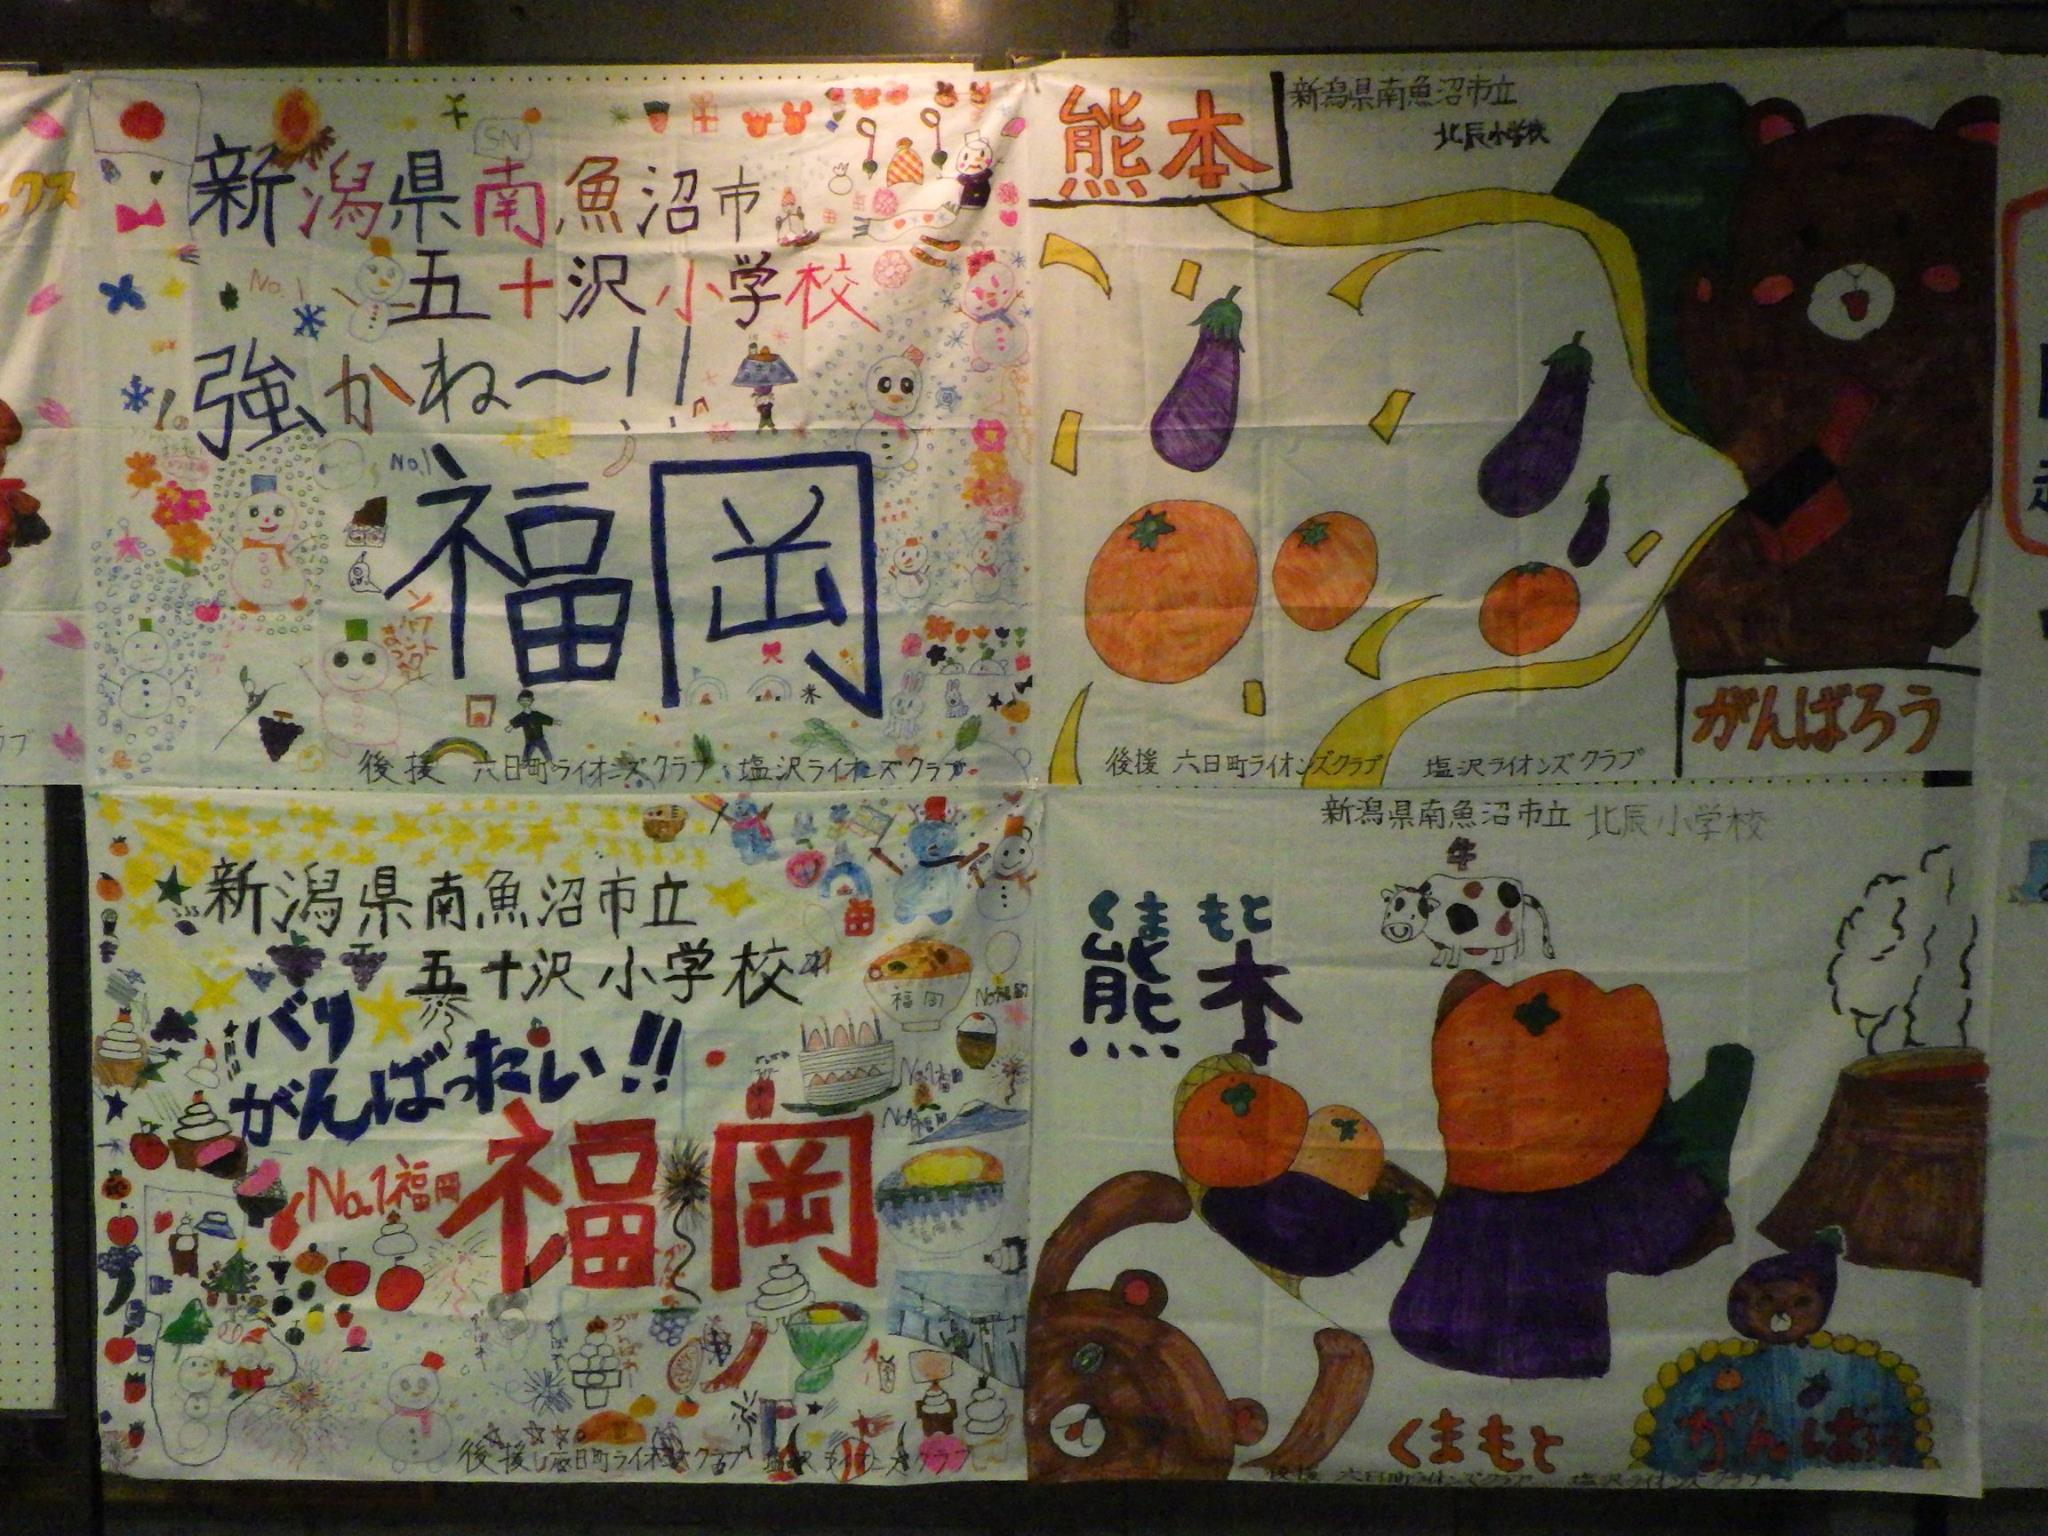 新潟県南魚沼市
五十沢小学校
強かね〜!!
No.1
No.1
福岡
後援 六日町ライオンズクラブ 塩沢ライオンズクラブ
熊本
新潟県南魚沼市立
北辰小学校
がんばろう
後援 六日町ライオンズクラブ 塩沢ライオンズクラブ
新潟県南魚沼市立
五十沢小学校
バリ
がんばったい!!
No.1福岡
福岡
福岡
後援 六日町ライオンズクラブ 塩沢ライオンズクラブ
新潟県南魚沼市立 北辰小学校
牛
くまもと
熊本
くまもと
がんばろう
後援 六日町ライオンズクラブ 塩沢ライオンズクラブ
クス